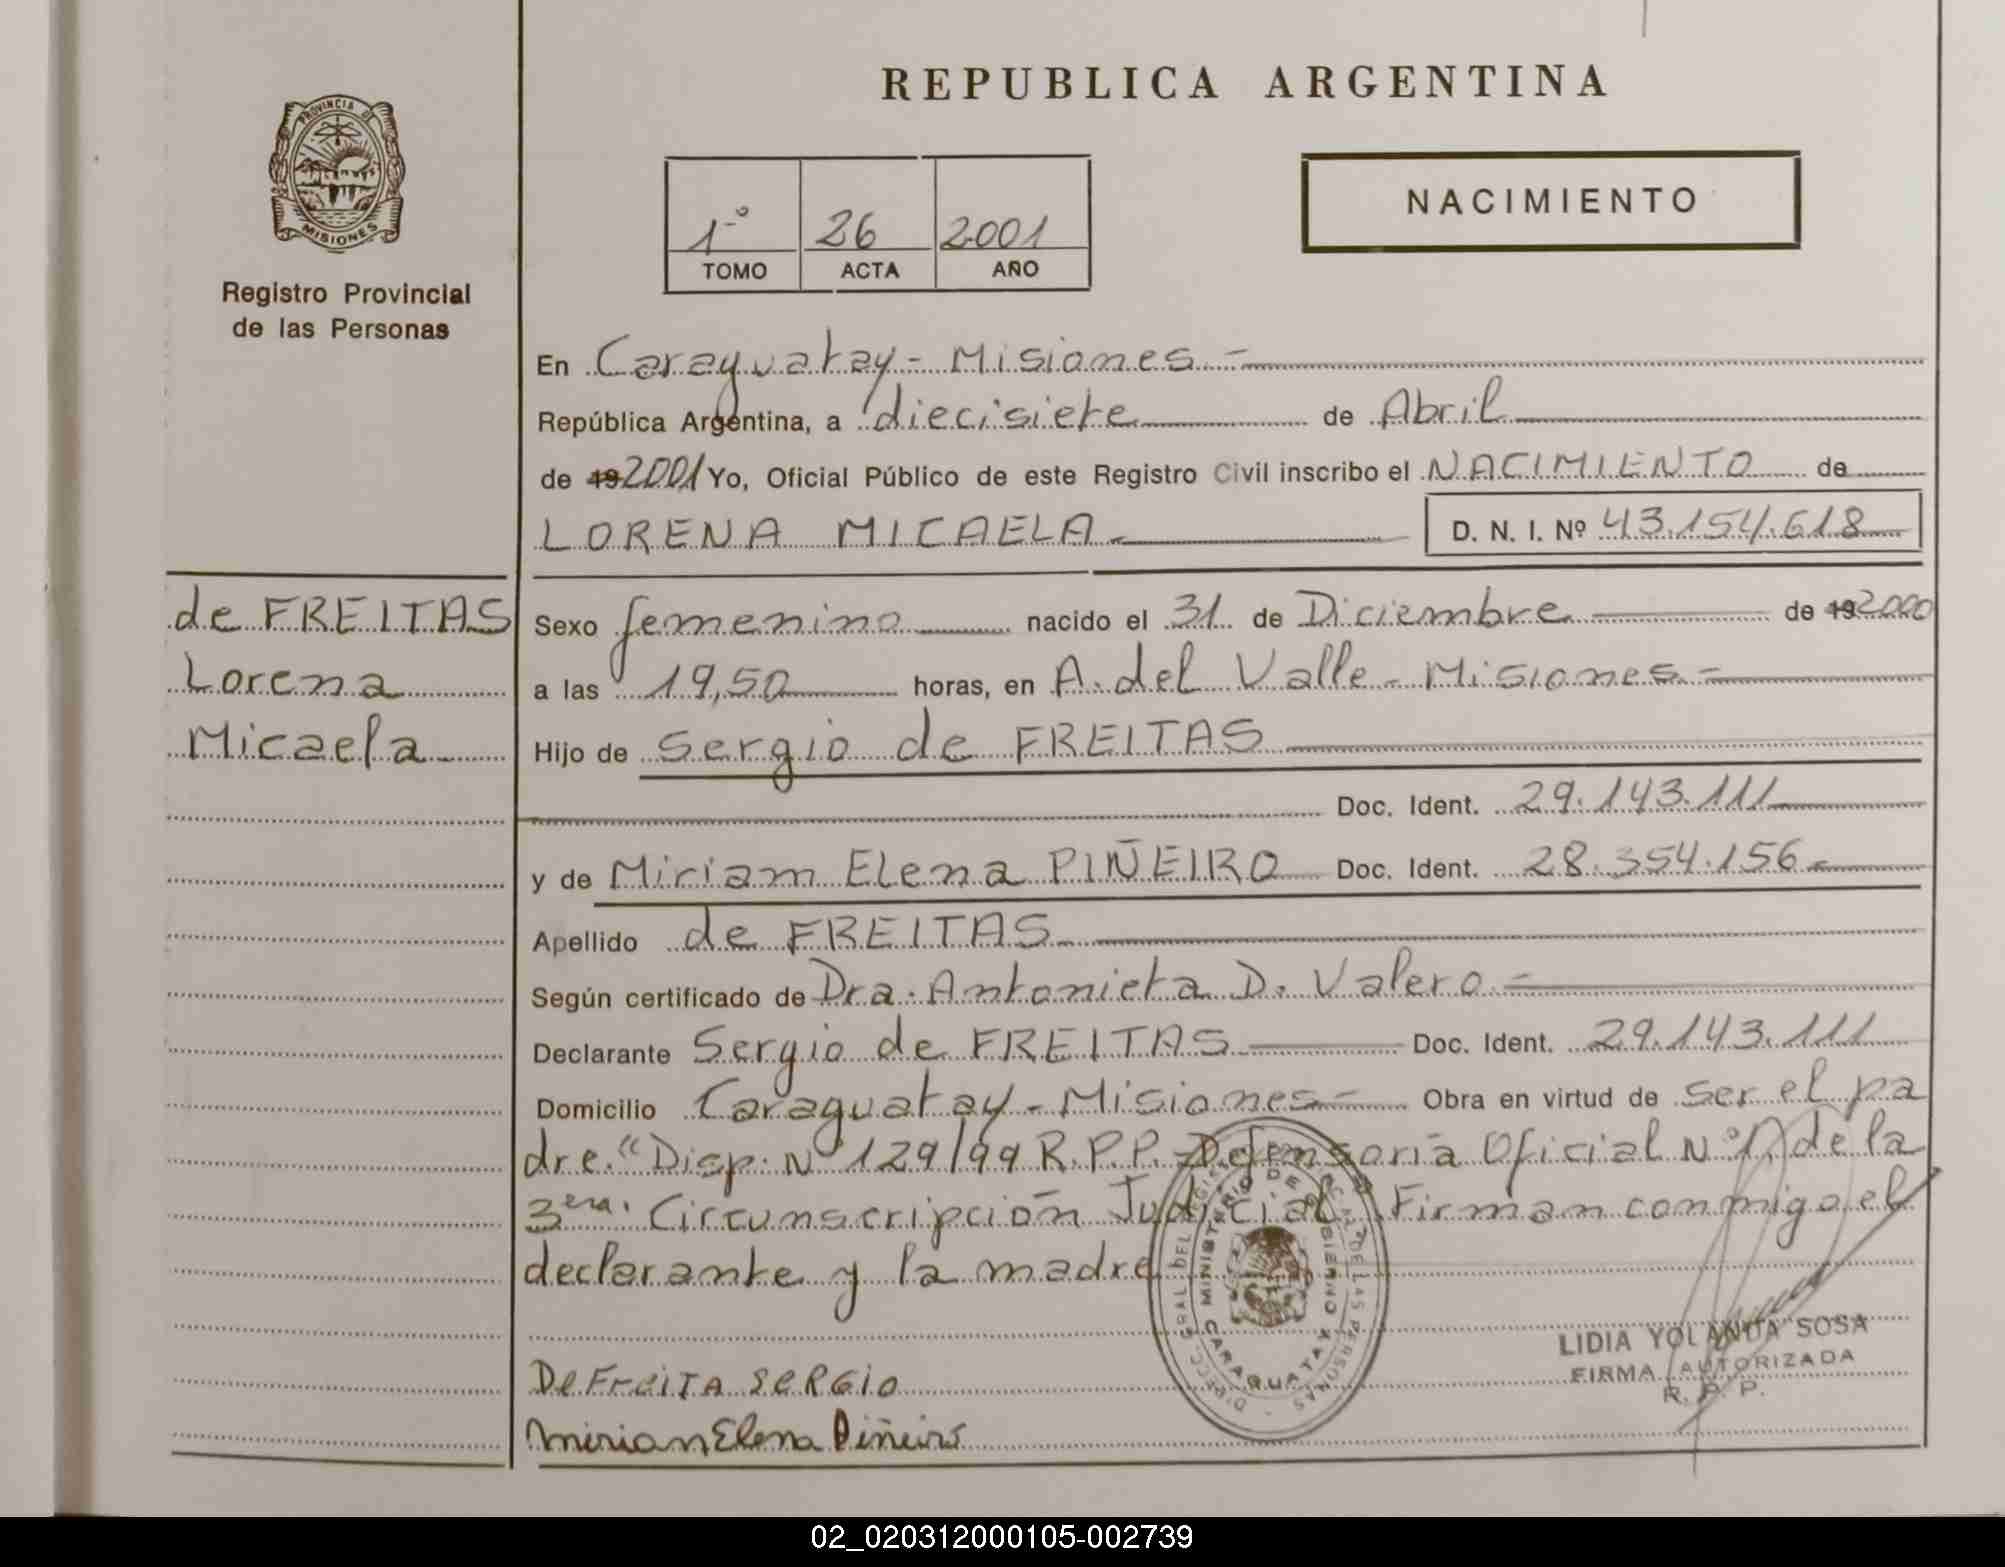 REPUBLICA ARGENTINA
PROVINCIA DE
MISIONES
Registro Provincial
de las Personas
NACIMIENTO
1º 26 2001
TOMO ACTA AÑO
En Caraguatay - Misiones.-
República Argentina, a diecisiete de Abril
de 19 2001 Yo, Oficial Público de este Registro Civil inscribo el NACIMIENTO de
LORENA MICAELA.- D. N. I. Nº 43.154.618
de FREITAS
Lorena
Micaela
Sexo femenino nacido el 31 de Diciembre de 19 2000
a las 19,50 horas, en A. del Valle - Misiones.-
Hijo de Sergio de FREITAS
Doc. Ident. 29.143.111
y de Miriam Elena PIÑEIRO Doc. Ident. 28.354.156.-
Apellido de FREITAS
Según certificado de Dra. Antonieta D. Valero.-
Declarante Sergio de FREITAS Doc. Ident. 29.143.111
Domicilio Caraguatay - Misiones.- Obra en virtud de ser el pa
dre. "Disp. Nº 129/99 R.P.P. Defensoría Oficial Nº 1, de la
3era. Circunscripción Judicial. Firman conmigo el
declarante y la madre
DIRECC. GRAL DEL REGISTRO PROVINCIAL DE LAS PERSONAS
MINISTERIO DE GOBIERNO
CARAGUATAY
LIDIA YOLANDA SOSA
FIRMA AUTORIZADA
R. P. P.
DeFreiTA SeRGio
Mirian Elena Piñeiro
02_020312000105-002739